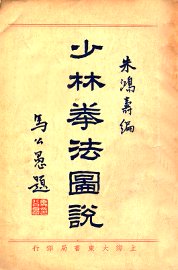 朱鴻壽編
少林拳法圖說
馬公愚題
上海大東書局印行